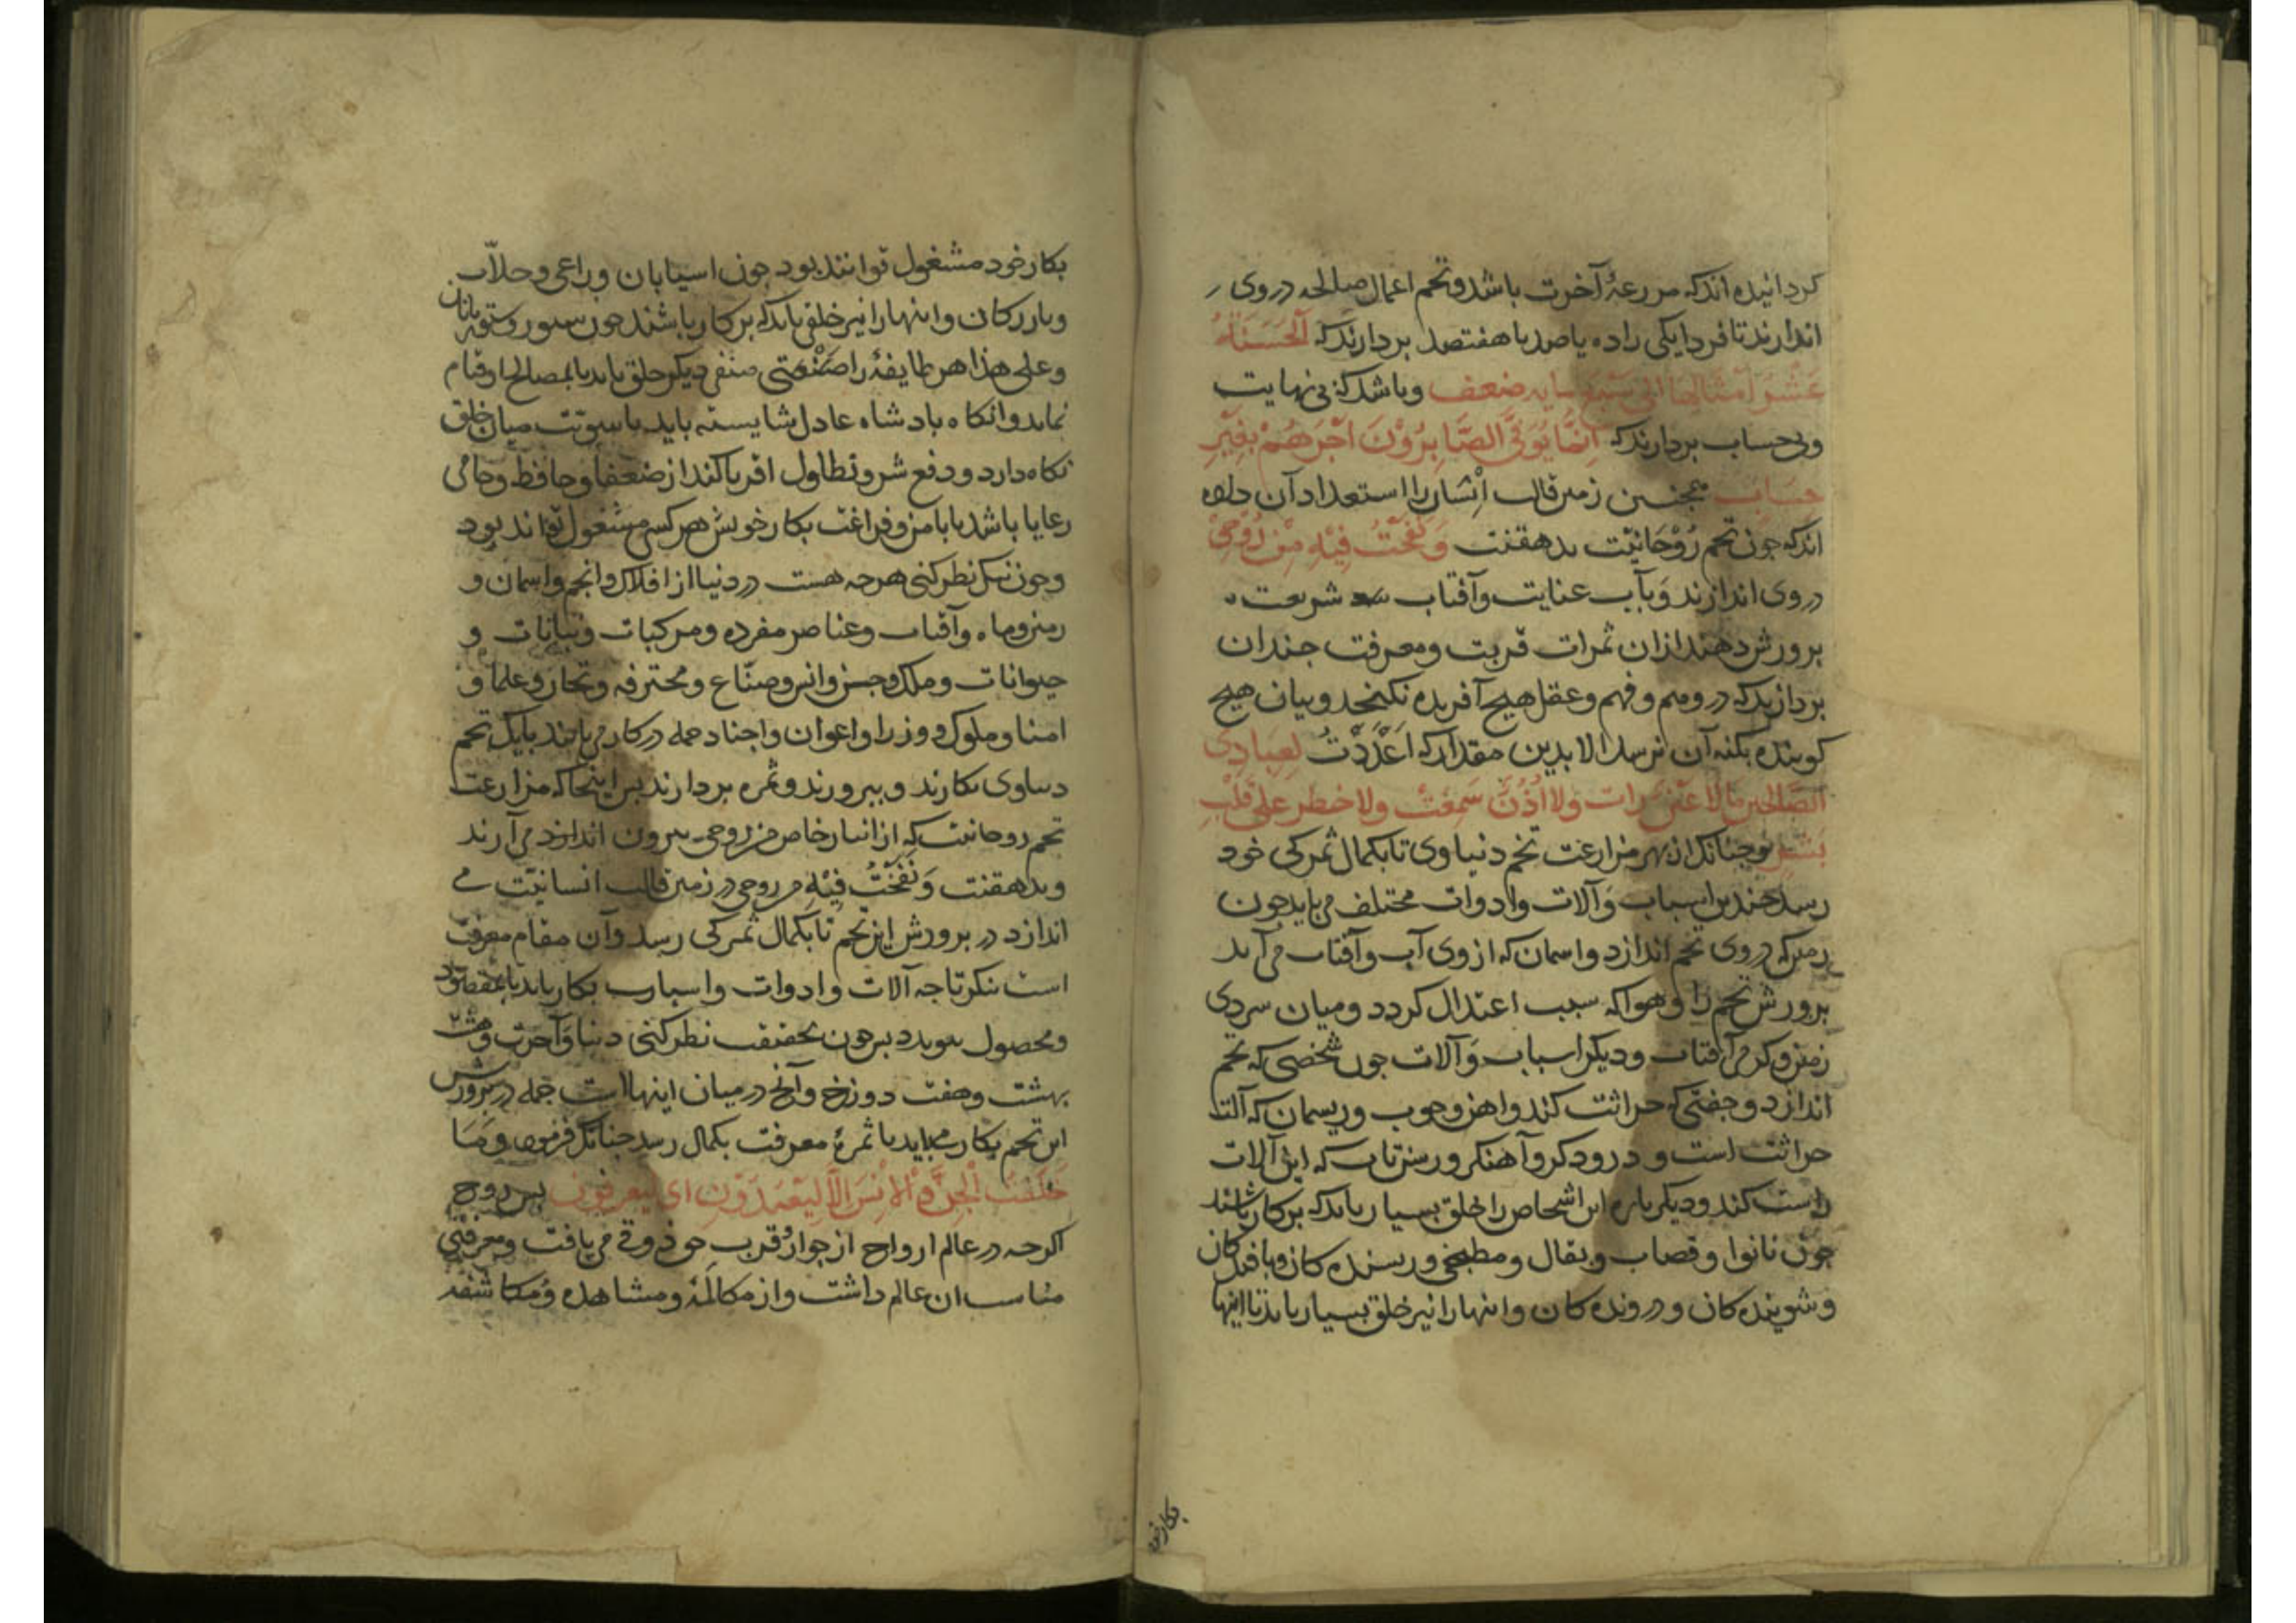 کردانیده اندکه مزرعهٔ آخرت باشد وتخم اعمال صالحه در وی
اندازند تا فردا یکی را ده یا صد یا هفتصد بردارند که الحسنة
عشر امثالها الی سبع مایه ضعف وباشد که بی نهایت
وبی حساب بردارند که انما یوفی الصابرون اجرهم بغیر
حساب همجنین زمین قالب انسان را استعداد آن داده
اندکه جون تخم روحانیت بدهقنت ونفخت فیه من روحی
در وی اندازند وبآب عنایت وآفتاب شریعت
برورش دهند ازان ثمرات قربت ومعرفت جندان
بردارند که در وهم وفهم وعقل هیج آفریده نکنجد وبیان هیج
کوینده بکنه آن نرسد الا بدین مقدار که اعددت لعبادی
الصالحین مالا عین رات ولا اذن سمعت ولا خطر علی قلب
بشر وجنانک از بهر مزارعت تخم دنیاوی تا بکمال ثمرکی خود
رسد جندین اسباب وآلات وادوات مختلف می باید جون
زمین که در وی تخم اندازد واسمان که از وی آب وآفتاب می آید
برورش تخم را وهوا که سبب اعتدال کردد ومیان سردی
زمین وکرمی آفتاب ودیکر اسباب وآلات جون شخصی که تخم
اندازد وجفتی که حراثت کند واهن وجوب وریسمان که آلت
حراثت است ودرودکر وآهنکر ورسن تاب که این آلات
راست کند ودیکر باره این اشخاص را خلق بسیار باید که برکار باشند
جون نانوا وقصاب وبقال ومطبخی وریسنده کان وبافندکان
وشوینده کان ودرونده کان واینها را نیز خلق بسیار باید تا اینها
بکار خود
بکار خود مشغول توانند بود جون اسیابان وراعی وحلاب
وبازرکان واینها را نیز خلقی باید که برکار باشند جون ستوربانان
وعلی هذا هر طایفهٔ را صنفی دیکر خلق باید تا بمصالح او قیام
نماید وانکاه بادشاه عادل شایسته باید تا سویت میان خلق
نکاه دارد ودفع شر وتطاول اقویا کند از ضعفا وحافظ وحامی
رعایا باشد تا بامن وفراغت بکار خویش هر کسی مشغول تواند بود
وجون نیک نظر کنی هرجه هست در دنیا از افلاک وانجم واسمان و
زمین وماه وآفتاب وعناصر مفرده ومرکبات ونباتات و
حیوانات وملک وجن وانس وصناع ومحترفه وتجار وعلما و
امنا وملوک ووزرا واعوان واجناد جمله درکار می بایند تا یک تخم
دنیاوی بکارند وببرورند وثمره بردارند بس اینجا که مزارعت
تخم روحانیت که از انبار خاص من روحی بیرون می آرند
وبدهقنت ونفخت فیه من روحی در زمین قالب انسانیت می
اندازد در برورش این تخم تا بکمال ثمرکی رسد وآن مقام معرفت
است بنکر تا جه آلات وادوات واسباب بکار باید تا مقصود
ومحصول بیوندد بس جون بحقیقت نظر کنی دنیا وآخرت وهشت
بهشت وهفت دوزخ وآنج در میان اینها است جمله در برورش
این تخم بکار می باید تا ثمرهٔ معرفت بکمال رسد جنانک فرمود وما
خلقت الجن والانس الا لیعبدون ای لیعرفون بس روح
اکرجه در عالم ارواح از جوار وقرب حق ذوقی می یافت ومعرفتی
مناسب ان عالم داشت واز مکالمه ومشاهده ومکاشفه